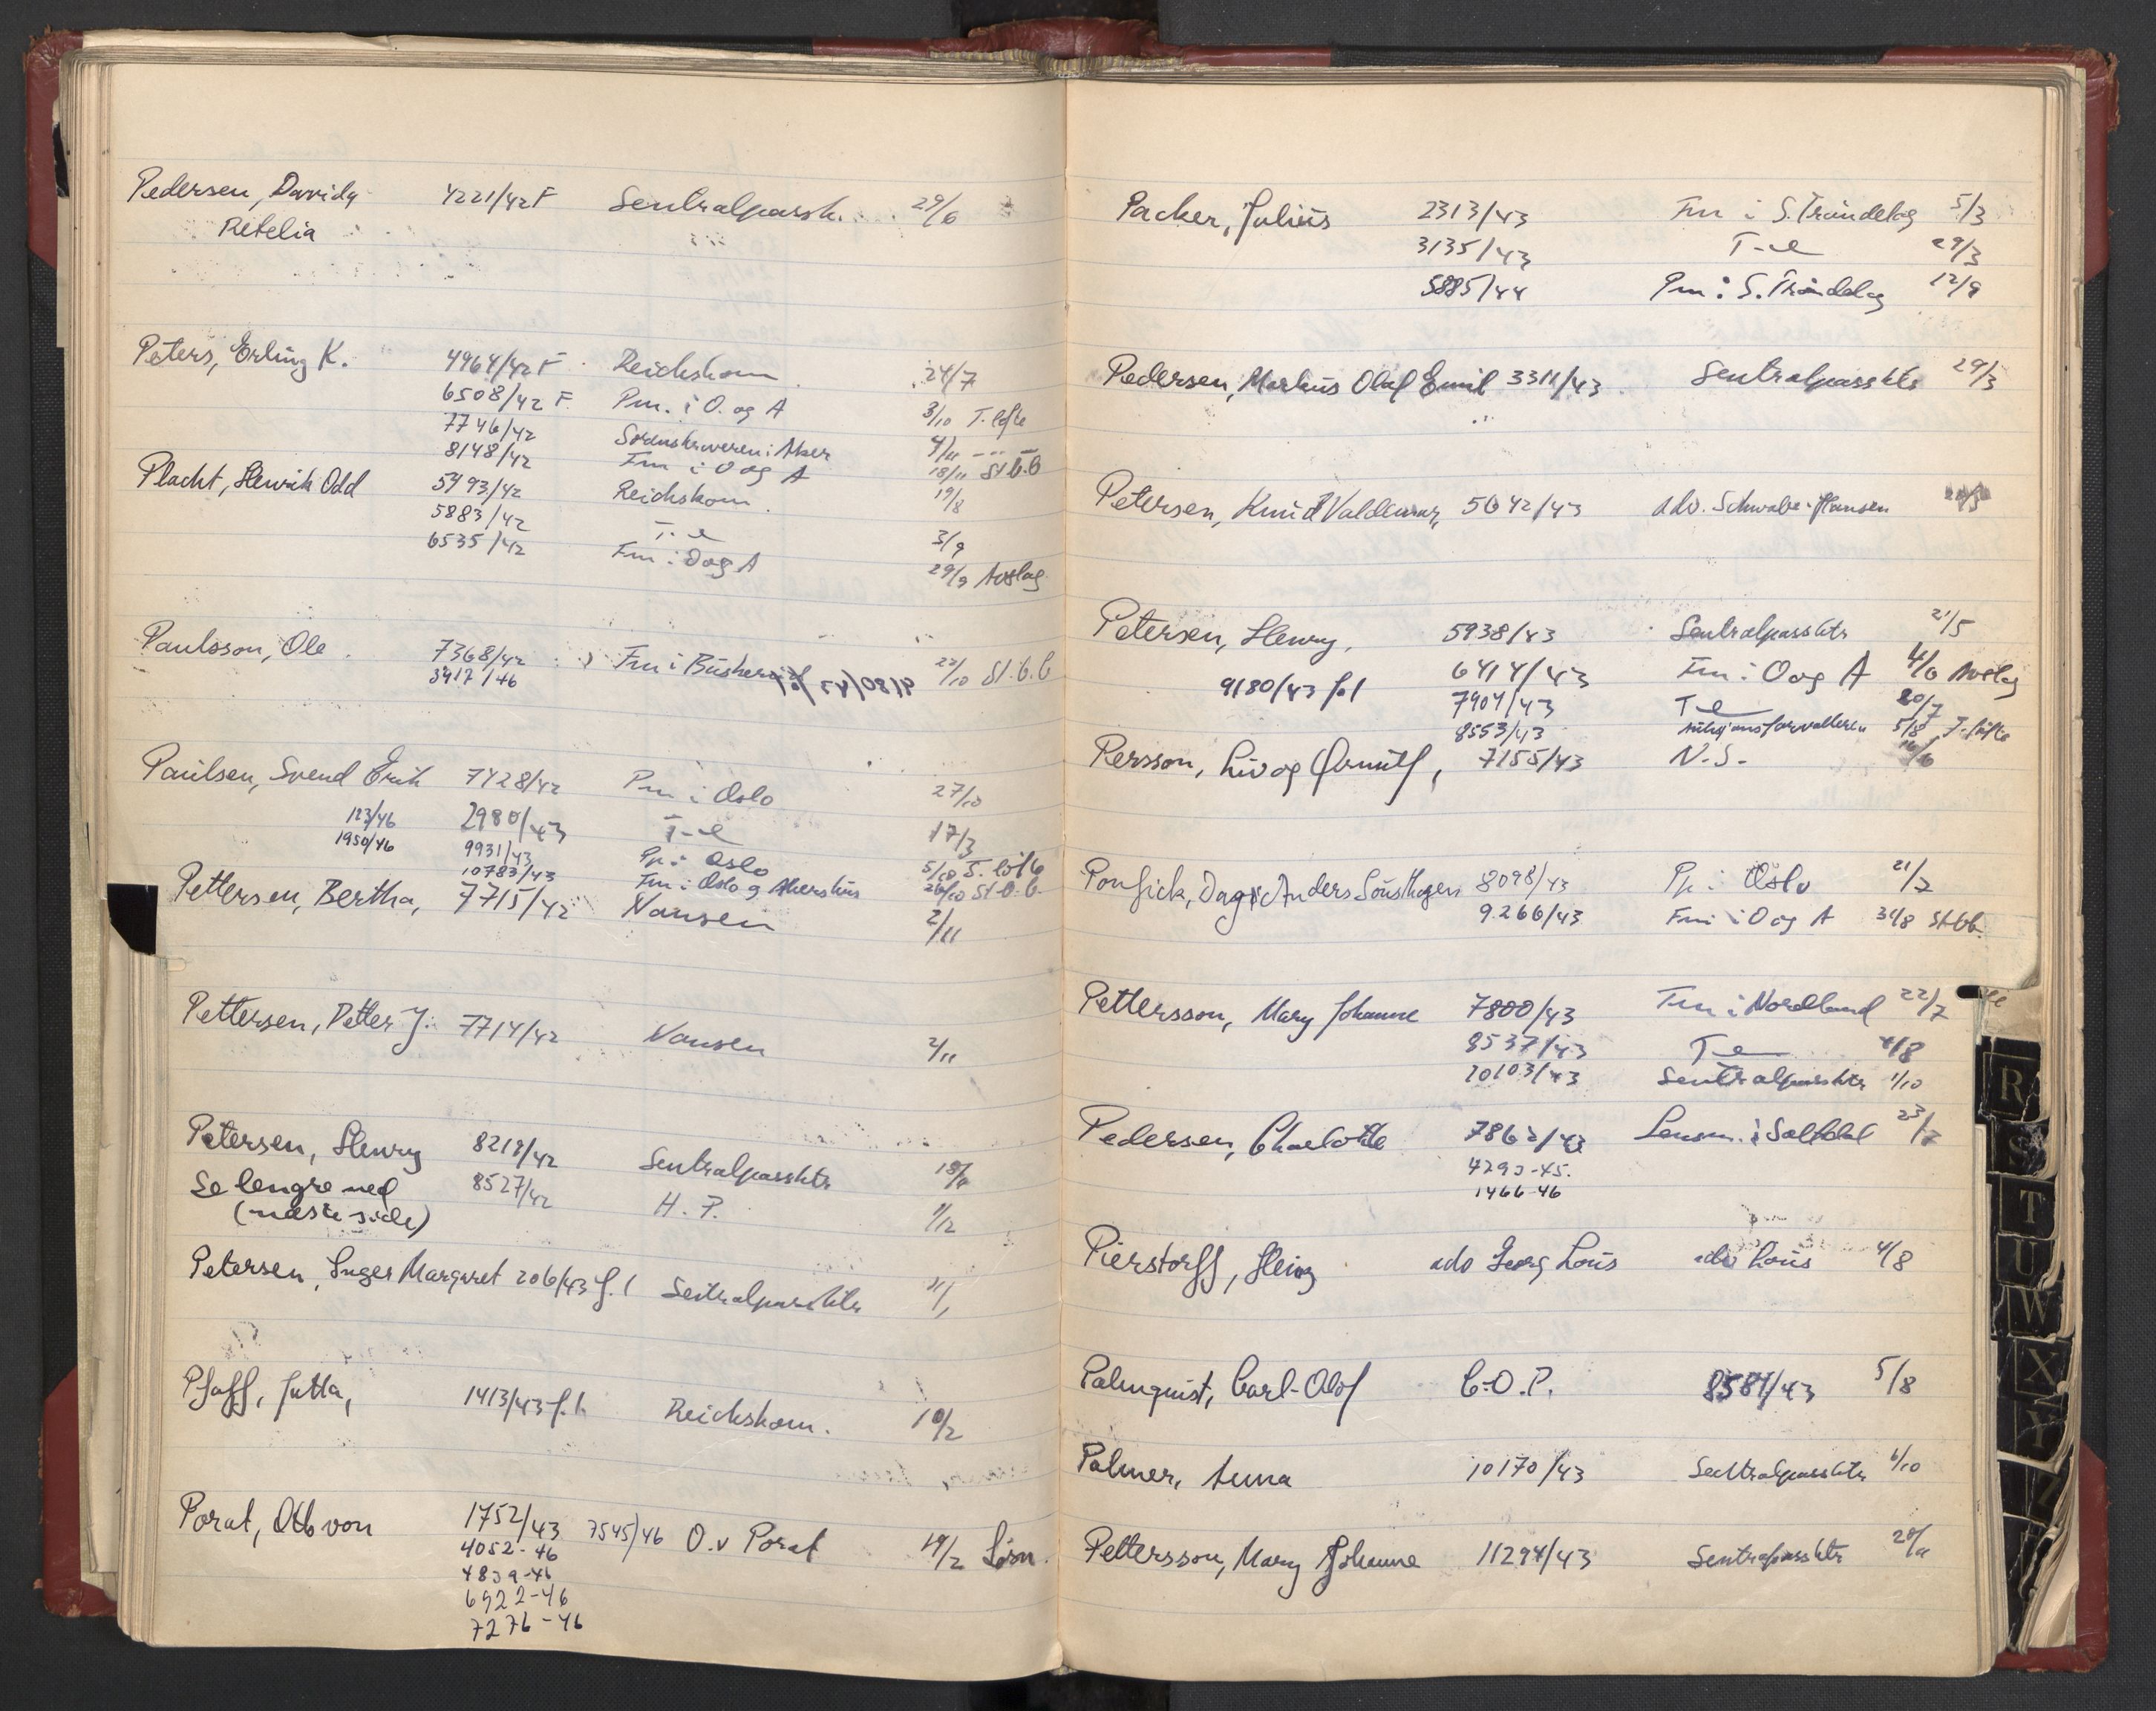 Pedersen, Davida 4221/42 F Sentralpassk. 29/6
Retelia
Peters, Erling K. 4964/42 F Reichskom 24/7
6508/42 F. Pm. i O. og A 3/10 T. løfte
7746/42 Sorenskriveren i Aker 4/11 - - -
8148/42 Fm i O og A 18/11 St.b.b
Placht, Henrik Odd 5493/42 Reichskom. 19/8
5883/42 T-e 3/9
6535/42 Fm i O og A 29/9 Avslag
Paulsson, Ole 7368/42 Fm i Buskerud 22/10 St.b.b
3917/46
Paulsen, Svend Erik 7428/42 Pm i Oslo 27/10
123/46 2980/43 T-e 17/3
1950/46 9931/43 Pp i Oslo 5/10 T. løfte
10783/43 Fm i Oslo og Akershus 26/10 St.b.b.
Pettersen, Bertha, 7715/42 Nansen 2/11
Pettersen, Petter J. 7714/42 Nansen 2/11
Petersen, Henry 8219/42 Sentralpassktr
Se lengre ned 8527/42 H. P. 1/12
(næste side)
Petersen, Inger Margaret 206/43 f.l Sentralpassktr 11/1
Pfaff, Jutta, 1413/43 f.l. Reichskom. 10/2
Porat, Otto von 1752/43 7545/46 O. v Porat 19/2 Løsn.
4052-46
4839-46
6922-46
7276-46
Packer, Julius 2313/43 Fm i S. Trøndelag 5/3
3135/43 T-e 29/3
5885/44 Pm i S. Trøndelag 12/9
Pedersen, Markus Olaf Emil 3311/43 Sentralpassktr 29/3
Petersen, Knud Valdemar, 5642/43 adv. Schwabe-Hansen
Petersen, Henry, 5938/43 Sentralpassktr 21/5
6414/43 Fm i O og A 4/6 Avslag
9180/43 f.l 7904/43 T-e 20/7
8553/43 5/8 T. løfte
Persson, Liv og Ørnulf, 7155/43 N.S. 16/6
Ponsick, Dag Anders 8098/43 Pp i Oslo 21/7
9266/43 Fm i O og A 31/8 St.b.b.
Pettersson, Mary Johanne 7800/43 Fm i Nordland 22/7
8537/43 T-e 4/8
10103/43 Sentralpassktr 1/10
Pedersen, Charlotte 7862/43 Lensm. i Saltdal 23/7
4293-45.
1466-46
Pierstorff, Heinz adv Georg Lous adv Lous 4/8
Palmquist, Carl-Olof C.O.P. 8587/43 5/8
Palmer, Anna 10170/43 Sentralpassktr 6/10
Pettersson, Mary Johanne 11294/43 Sentralpassktr
R
S
T
U
W
X
Y
Z